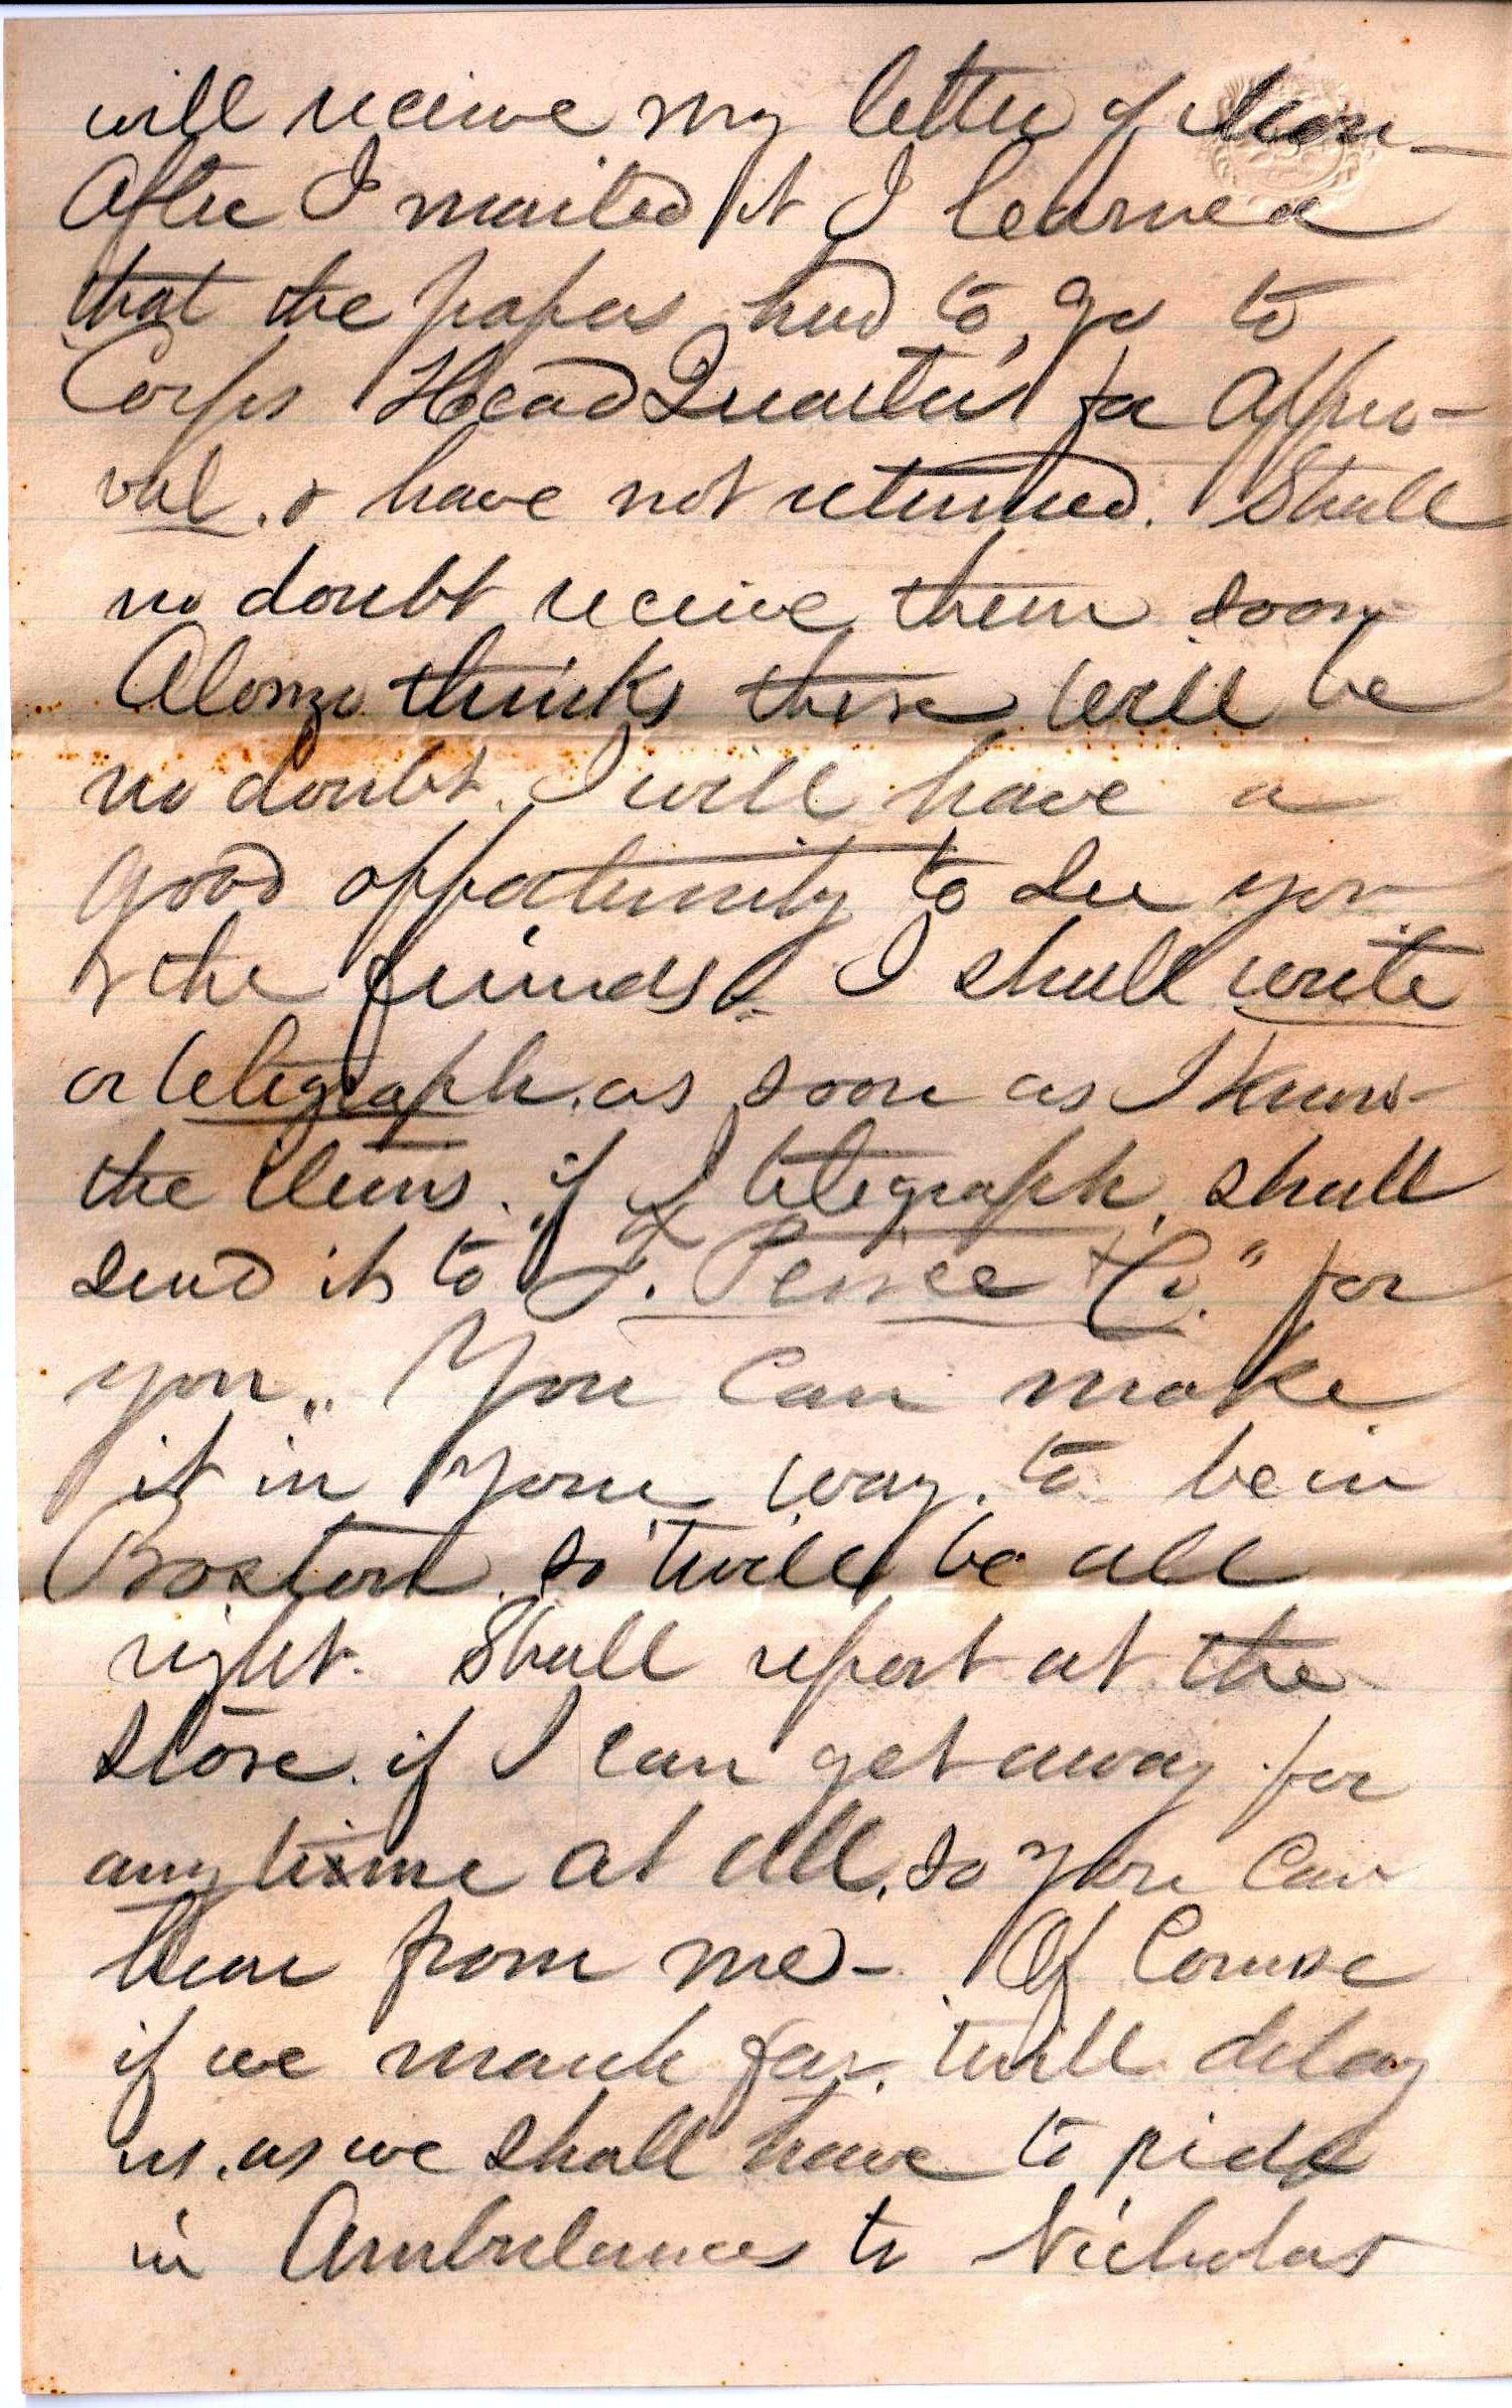 will receive my letter of Mon-
After I mailed it I learned
that the papers had to go to
Corps Head Quarters for Appro-
val. & have not returned. Shall
no doubt receive them soon
Alonzo thinks there will be
no doubt. I will have a
good opportunity to see you
& the friends. I shall write
or telegraph. as soon as I know
the items. if I telegraph, shall
send it to "F. Peirce & Co." for
you.. You can make
it in your way. to be in
Boston. so 'twill be all
right. Shall report at the
store. if I can get away for
any time at all. so you can
hear from me - Of course
if we march far. twill delay
us. as we shall have to ride
in Ambulances to Nicholas